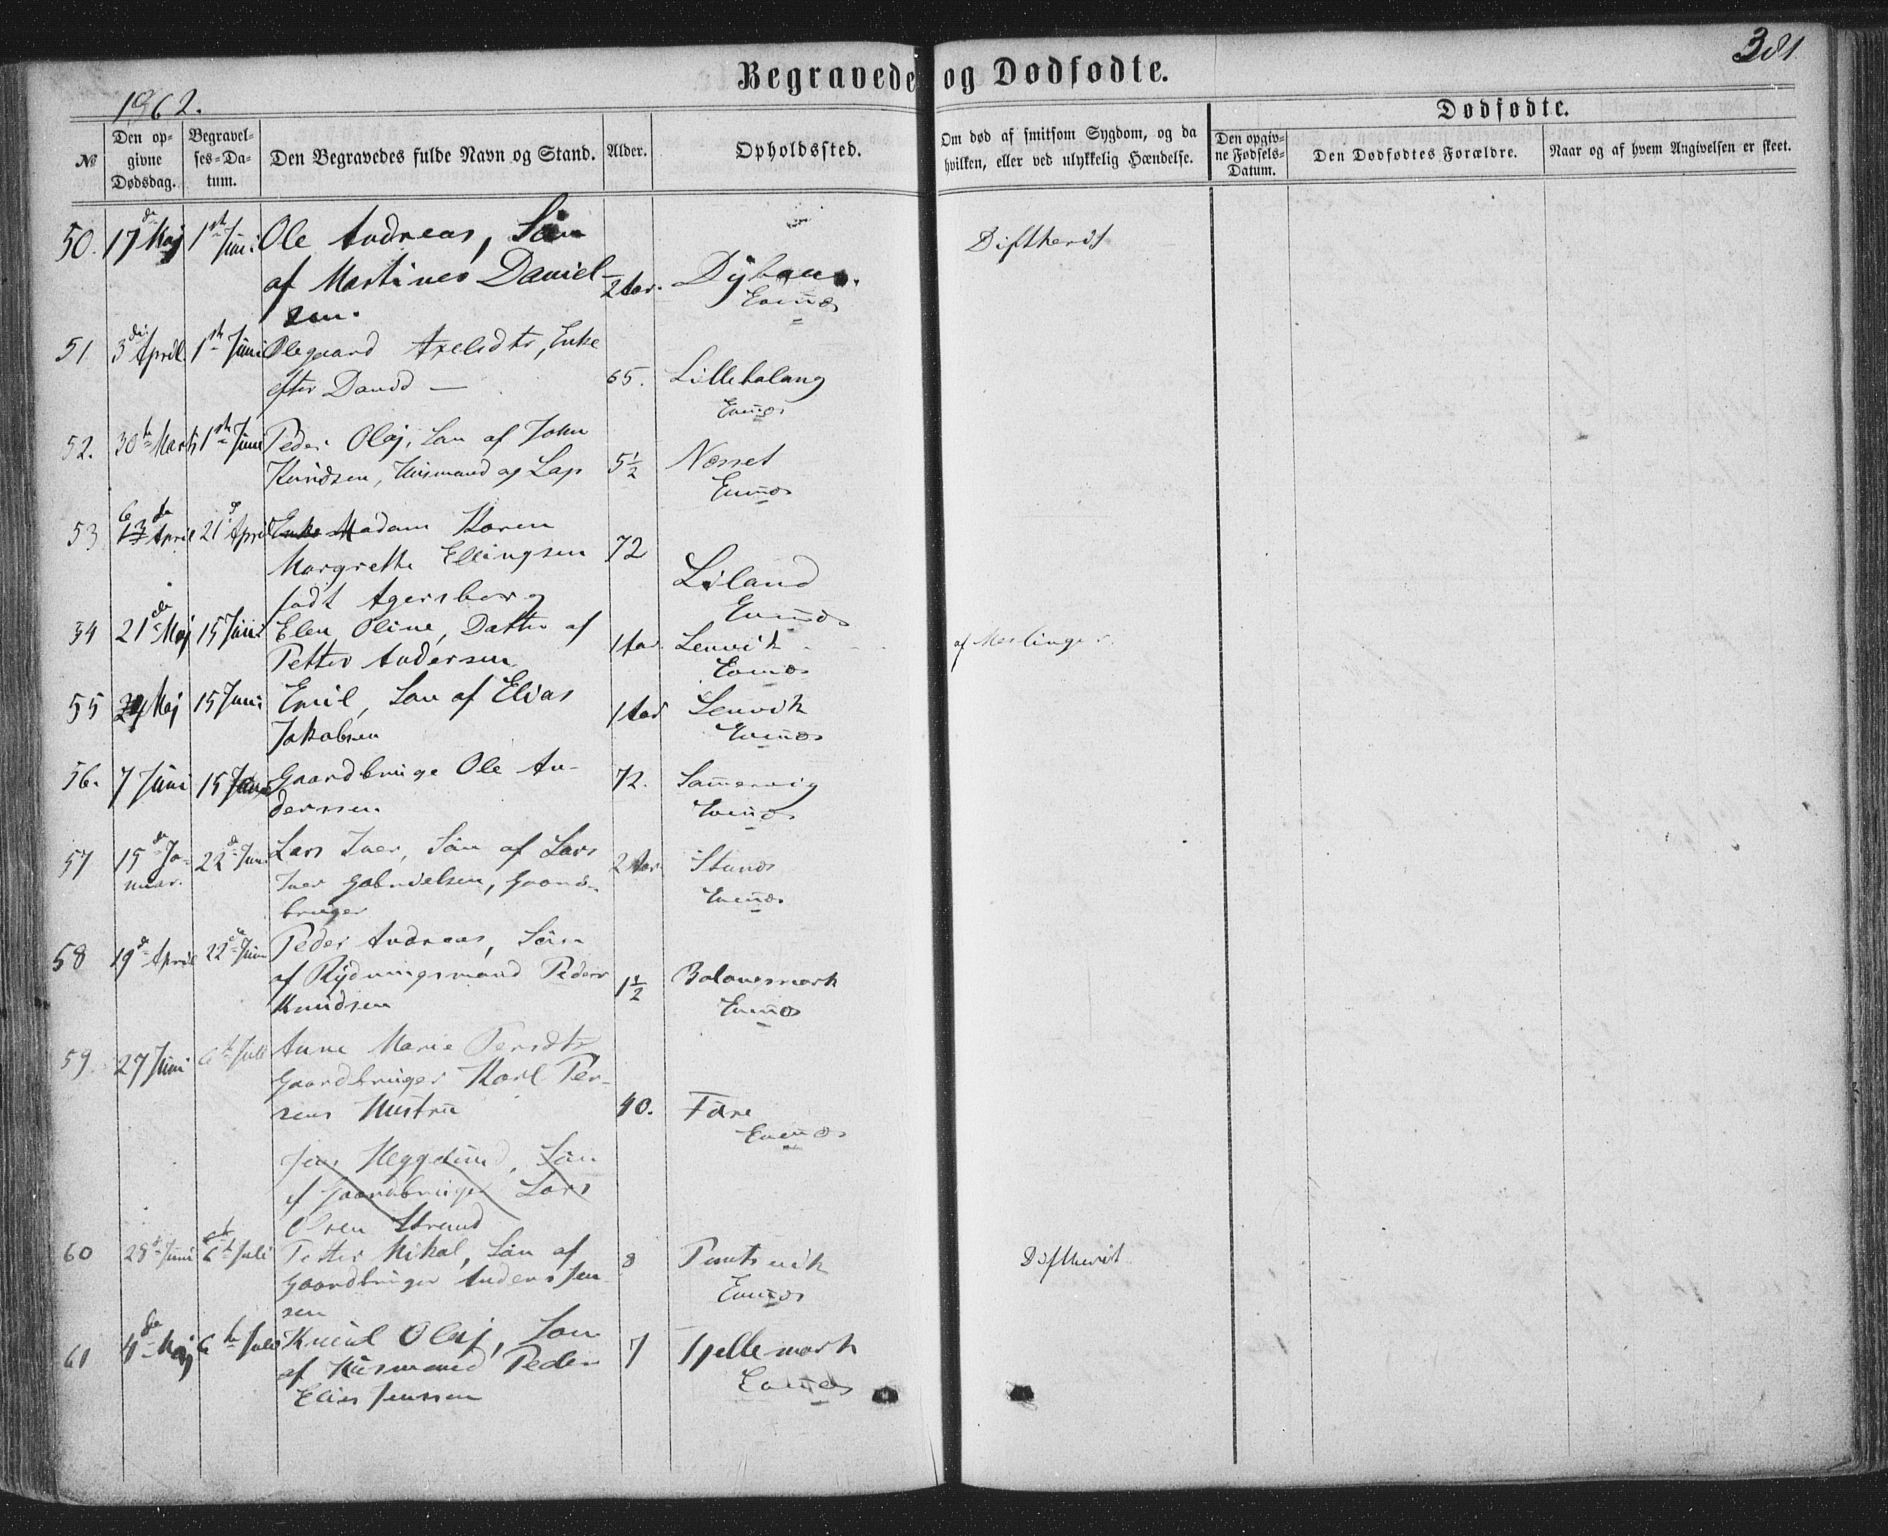 381.
Begravede og Dødfødte.
1862.
Dødfødte.
№
Den opgivne Dødsdag.
Begravelses-Datum.
Den Begravedes fulde Navn og Stand.
Alder.
Opholdssted.
Om død af smitsom Sygdom, og da hvilken, eller ved ulykkelig Hændelse.
Den opgivne Fødsels-Datum.
Den Dødfødtes Forældre.
Naar og af hvem Angivelsen er skeet.
50. 17de Maj 1ste Juni Ole Andreas, Søn Diftherit
af Martines Daniel- 2 Aar.
sen. Evenæs
51. 3die April 1ste Juni Olegaard Axelsdtr, Enke
efter 65. Lillebalang
Evenæs
52. 30te Marts 1ste Juni Peder Olaj, Søn af John
Knudsen, Huusmand og Lap 5½ Næsset
Evenæs
53 6 13de April 21de April Enke Madam Karen
Margrethe Ellingsen 72
født Agersborg Liland
Evenæs
54 21de Maj 15 Juni Elen Oline, Datter af
Petter Andersen 1 Aar Lenvik af Meslinger.
Evenæs
55 24 Maj 15 Juni Emil, Søn af Elias
Jakobsen 1 Aar Lenvik
Evenæs
56. 7 Juni 15 Juni Gaardbruger Ole An- 72.
derssen Evenæs
57 15de Ja- 22de Juni Lars Iver, Søn af Lars 2 Aar
nuar. Iver Gabrielsen, Gaard-
bruger Evenæs
58 19de April 22de Juni Peder Andreas, Søn
af Rydningsmand Peder 1½ Balangsmark
Knudsen Evenæs
59. 27 Juni 6te Juli Anne Marie Persdtr
Gaardbruger Karl Per-
sens Hustru 40. Fore
Evenæs
Jens Heggelund, Søn
af Gaardbruger Lars
Olsen Strand
60 25de Juni 6te Juli Petter Mikal, Søn af 8 Diftherit
Gaardbruger Anders Jen-
sen Evenæs
61 4de Maj 6te Juli Knud Olaj, Søn 7 Tjellemark
af Huusmand Peder
Elias Jenssen Evenæs